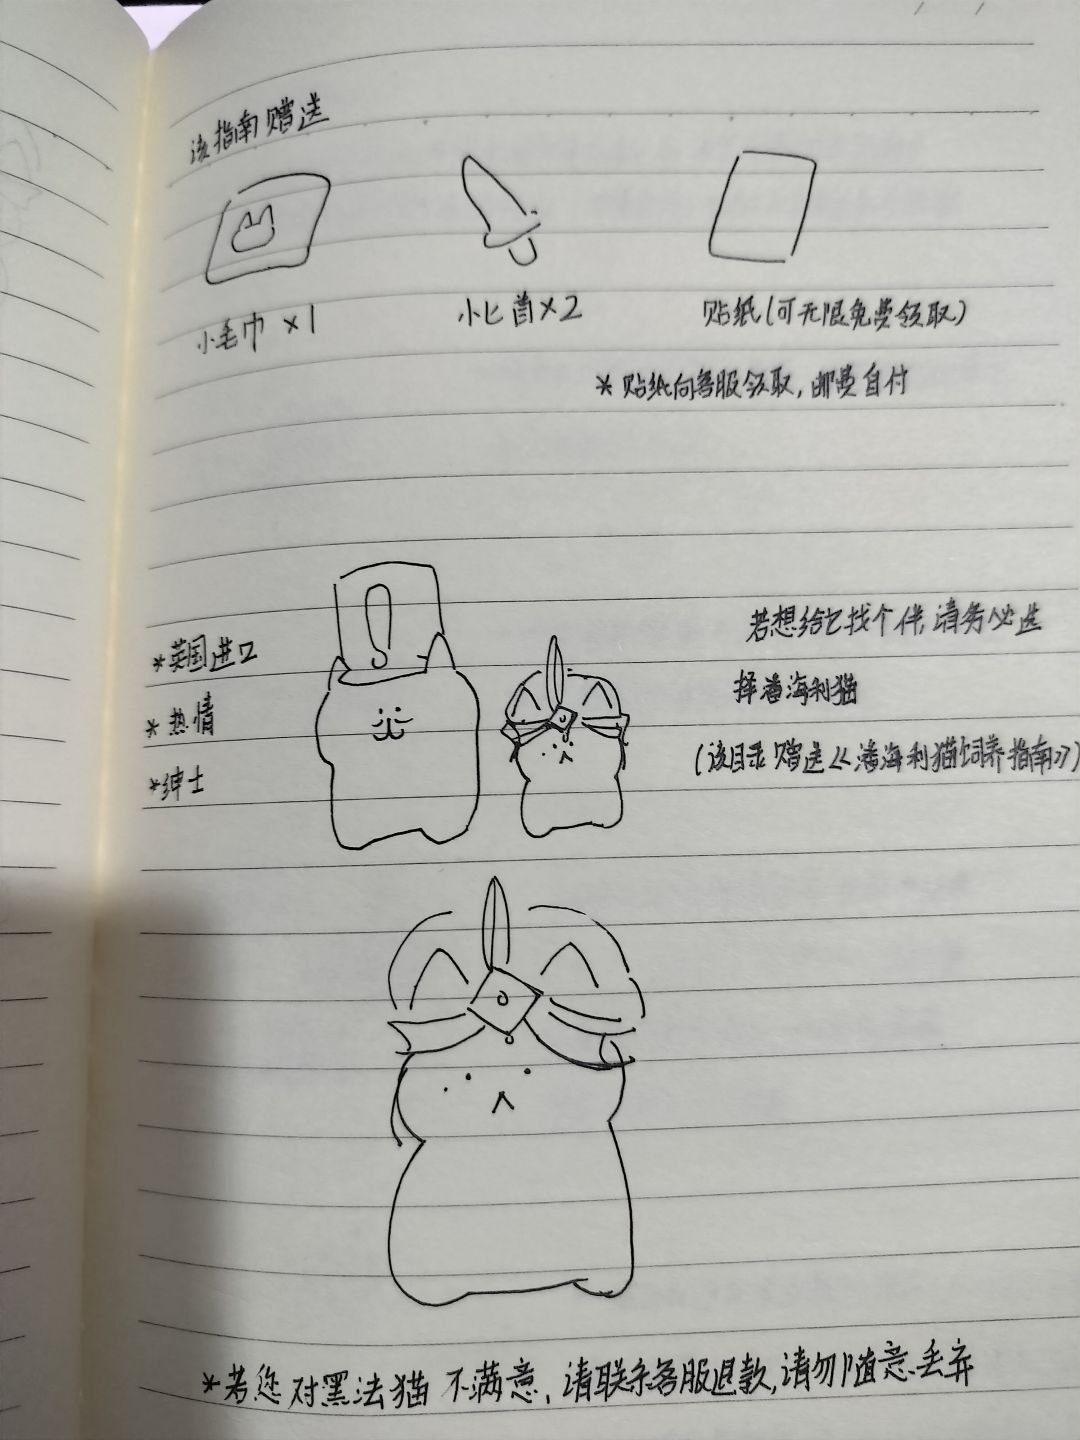 该指南赠送
小毛巾×1
小匕首×2
贴纸(可无限免费领取)
*贴纸向客服领取,邮费自付
*英国进口
*热情
*绅士
若想给它找个伴,请务必选
择潘海利猫
(该目录赠送《潘海利猫饲养指南》)
*若您对黑法猫不满意,请联系客服退款,请勿随意丢弃